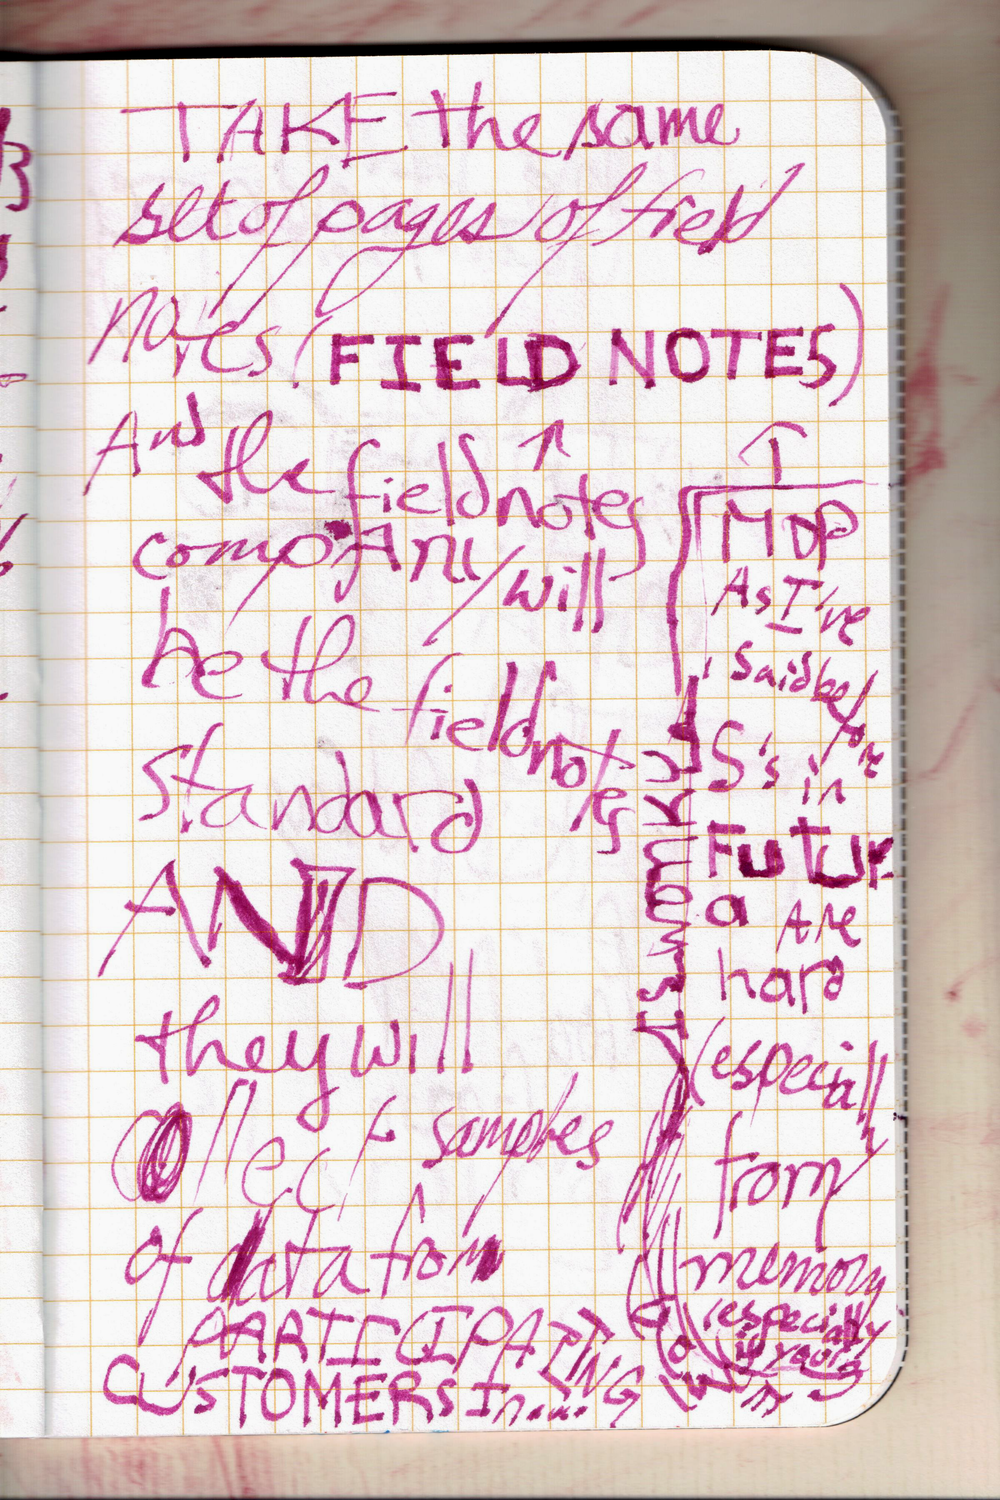 TAKE the same
set of pages of field
notes (FIELD NOTES)
And
the fieldnotes
company will
be the fieldnotes
standard
AND
they will
collect samples
of data from
PARTICIPATING
CUSTOMERS In....
↑
↑
MDP
As I've
Said before
S's in
Futura
Are
hard
(especially
from
memory
(especially
if you're